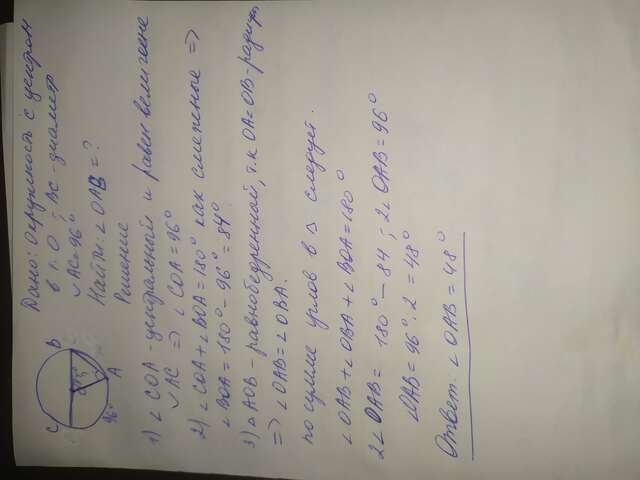 Дано: Окружность с центром
в т. О; BC - диаметр
◡AC=96°
Найти: ∠OAB = ?
Решение
1) ∠COA - центральный и равен величине
◡AC => ∠COA = 96°
2) ∠COA + ∠BOA = 180° как смежные =>
∠BOA = 180° - 96° = 84°
3) △AOB - равнобедренный, т.к OA=OB-радиусы
=> ∠OAB = ∠OBA.
по сумме углов в △ следует.
∠OAB + ∠OBA + ∠BOA = 180°
2∠OAB = 180° - 84; 2∠OAB = 96°
∠OAB = 96° : 2 = 48°
Ответ: ∠OAB = 48°
C
B
A
96°